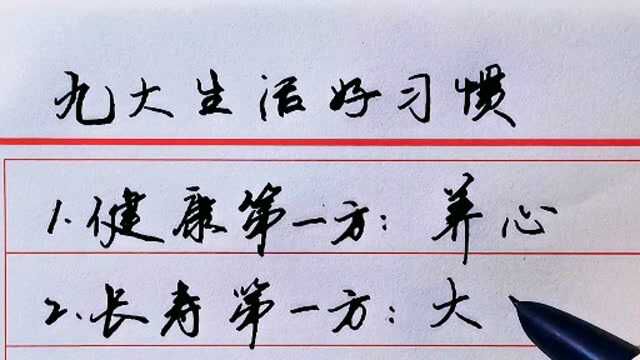 九大生活好习惯
1.健康第一方：养心
2.长寿第一方：大